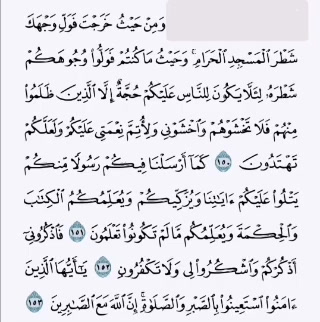 وَمِنْ حَيْثُ خَرَجْتَ فَوَلِّ وَجْهَكَ
شَطْرَ ٱلْمَسْجِدِ ٱلْحَرَامِ ۚ وَحَيْثُ مَا كُنتُمْ فَوَلُّوا۟ وُجُوهَكُمْ
شَطْرَهُۥ لِئَلَّا يَكُونَ لِلنَّاسِ عَلَيْكُمْ حُجَّةٌ إِلَّا ٱلَّذِينَ ظَلَمُوا۟
مِنْهُمْ فَلَا تَخْشَوْهُمْ وَٱخْشَوْنِى وَلِأُتِمَّ نِعْمَتِى عَلَيْكُمْ وَلَعَلَّكُمْ
تَهْتَدُونَ ١٥٠ كَمَآ أَرْسَلْنَا فِيكُمْ رَسُولًا مِّنكُمْ
يَتْلُوا۟ عَلَيْكُمْ ءَايَٰتِنَا وَيُزَكِّيكُمْ وَيُعَلِّمُكُمُ ٱلْكِتَٰبَ
وَٱلْحِكْمَةَ وَيُعَلِّمُكُم مَّا لَمْ تَكُونُوا۟ تَعْلَمُونَ ١٥١ فَٱذْكُرُونِىٓ
أَذْكُرْكُمْ وَٱشْكُرُوا۟ لِى وَلَا تَكْفُرُونِ ١٥٢ يَٰٓأَيُّهَا ٱلَّذِينَ
ءَامَنُوا۟ ٱسْتَعِينُوا۟ بِٱلصَّبْرِ وَٱلصَّلَوٰةِ ۚ إِنَّ ٱللَّهَ مَعَ ٱلصَّٰبِرِينَ ١٥٣